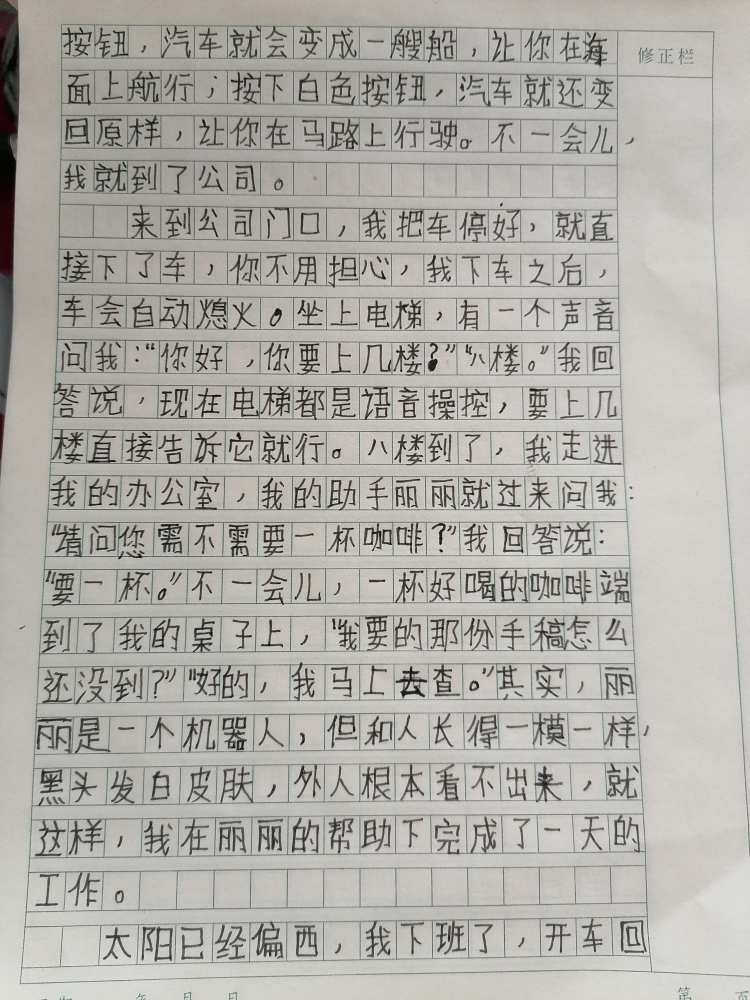 按钮，汽车就会变成一艘船，让你在海
修正栏
面上航行；按下白色按钮，汽车就还变
回原样，让你在马路上行驶。不一会儿，
我就到了公司。
来到公司门口，我把车停好，就直
接下了车，你不用担心，我下车之后，
车会自动熄火。坐上电梯，有一个声音
问我：“你好，你要上几楼？”“八楼。”我回
答说，现在电梯都是语音操控，要上几
楼直接告诉它就行。八楼到了，我走进
我的办公室，我的助手丽丽就过来问我：
“请问您需不需要一杯咖啡？”我回答说：
“要一杯。”不一会儿，一杯好喝的咖啡端
到了我的桌子上，“我要的那份手稿怎么
还没到？”“好的，我马上去查。”其实，丽
丽是一个机器人，但和人长得一模一样，
黑头发白皮肤，外人根本看不出来，就
这样，我在丽丽的帮助下完成了一天的
工作。
太阳已经偏西，我下班了，开车回
年 月 日
第 页